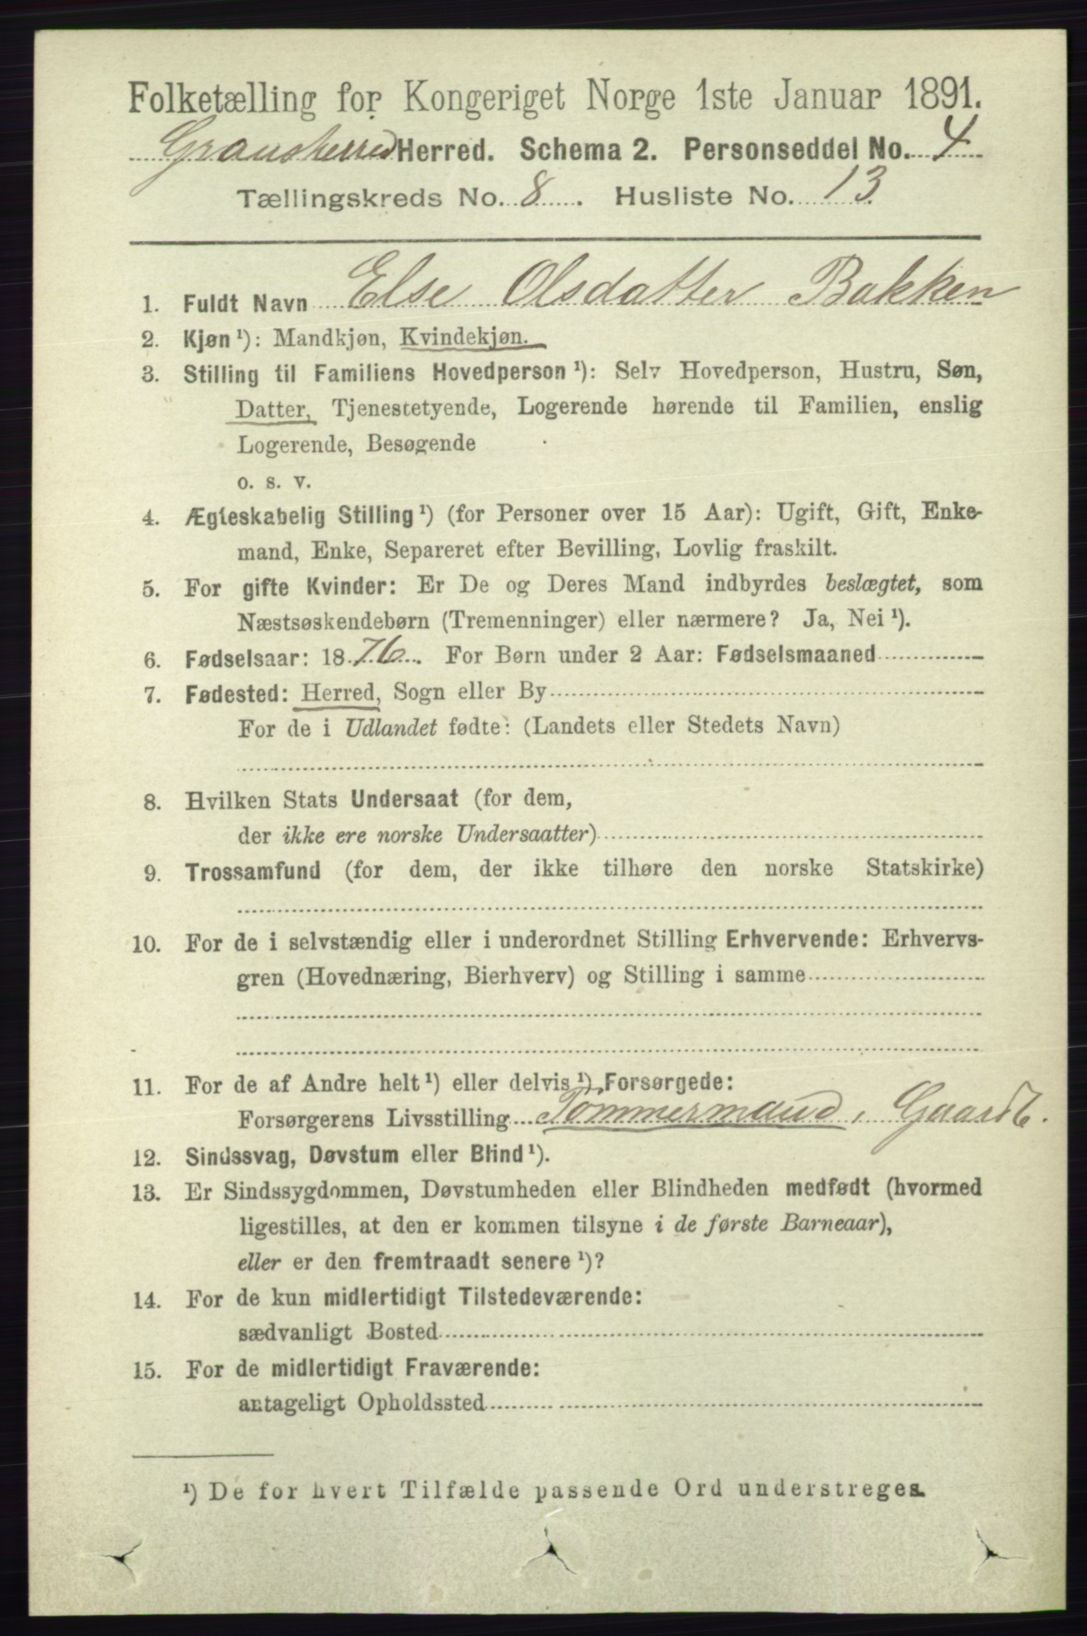 Folketælling for Kongeriget Norge 1ste Januar 1891.
Gransherred Herred. Schema 2. Personseddel No. 4
Tællingskreds No. 8. Husliste No. 13.
1. Fuldt Navn Else Olsdatter Bakken
2. Kjøn ¹): Mandkjøn, Kvindekjøn.
3. Stilling til Familiens Hovedperson ¹): Selv Hovedperson, Hustru, Søn,
Datter, Tjenestetyende, Logerende hørende til Familien, enslig
Logerende, Besøgende
o. s. v.
4. Ægteskabelig Stilling ¹) (for Personer over 15 Aar): Ugift, Gift, Enke-
mand, Enke, Separeret efter Bevilling, Lovlig fraskilt.
5. For gifte Kvinder: Er De og Deres Mand indbyrdes beslægtet, som
Næstsøskendebørn (Tremenninger) eller nærmere? Ja, Nei ¹).
6. Fødselsaar: 1876. For Børn under 2 Aar: Fødselsmaaned
7. Fødested: Herred, Sogn eller By
For de i Udlandet fødte: (Landets eller Stedets Navn)
8. Hvilken Stats Undersaat (for dem,
der ikke ere norske Undersaatter)
9. Trossamfund (for dem, der ikke tilhøre den norske Statskirke)
10. For de i selvstændig eller i underordnet Stilling Erhvervende: Erhvervs-
gren (Hovednæring, Bierhverv) og Stilling i samme
11. For de af Andre helt ¹) eller delvis ¹) Forsørgede:
Forsørgerens Livsstilling Tömmermand, Gaardb.
12. Sindssvag, Døvstum eller Blind ¹).
13. Er Sindssygdommen, Døvstumheden eller Blindheden medfødt (hvormed
ligestilles, at den er kommen tilsyne i de første Barneaar),
eller er den fremtraadt senere ¹)?
14. For de kun midlertidigt Tilstedeværende:
sædvanligt Bosted
15. For de midlertidigt Fraværende:
antageligt Opholdssted
¹) De for hvert Tilfælde passende Ord understreges.